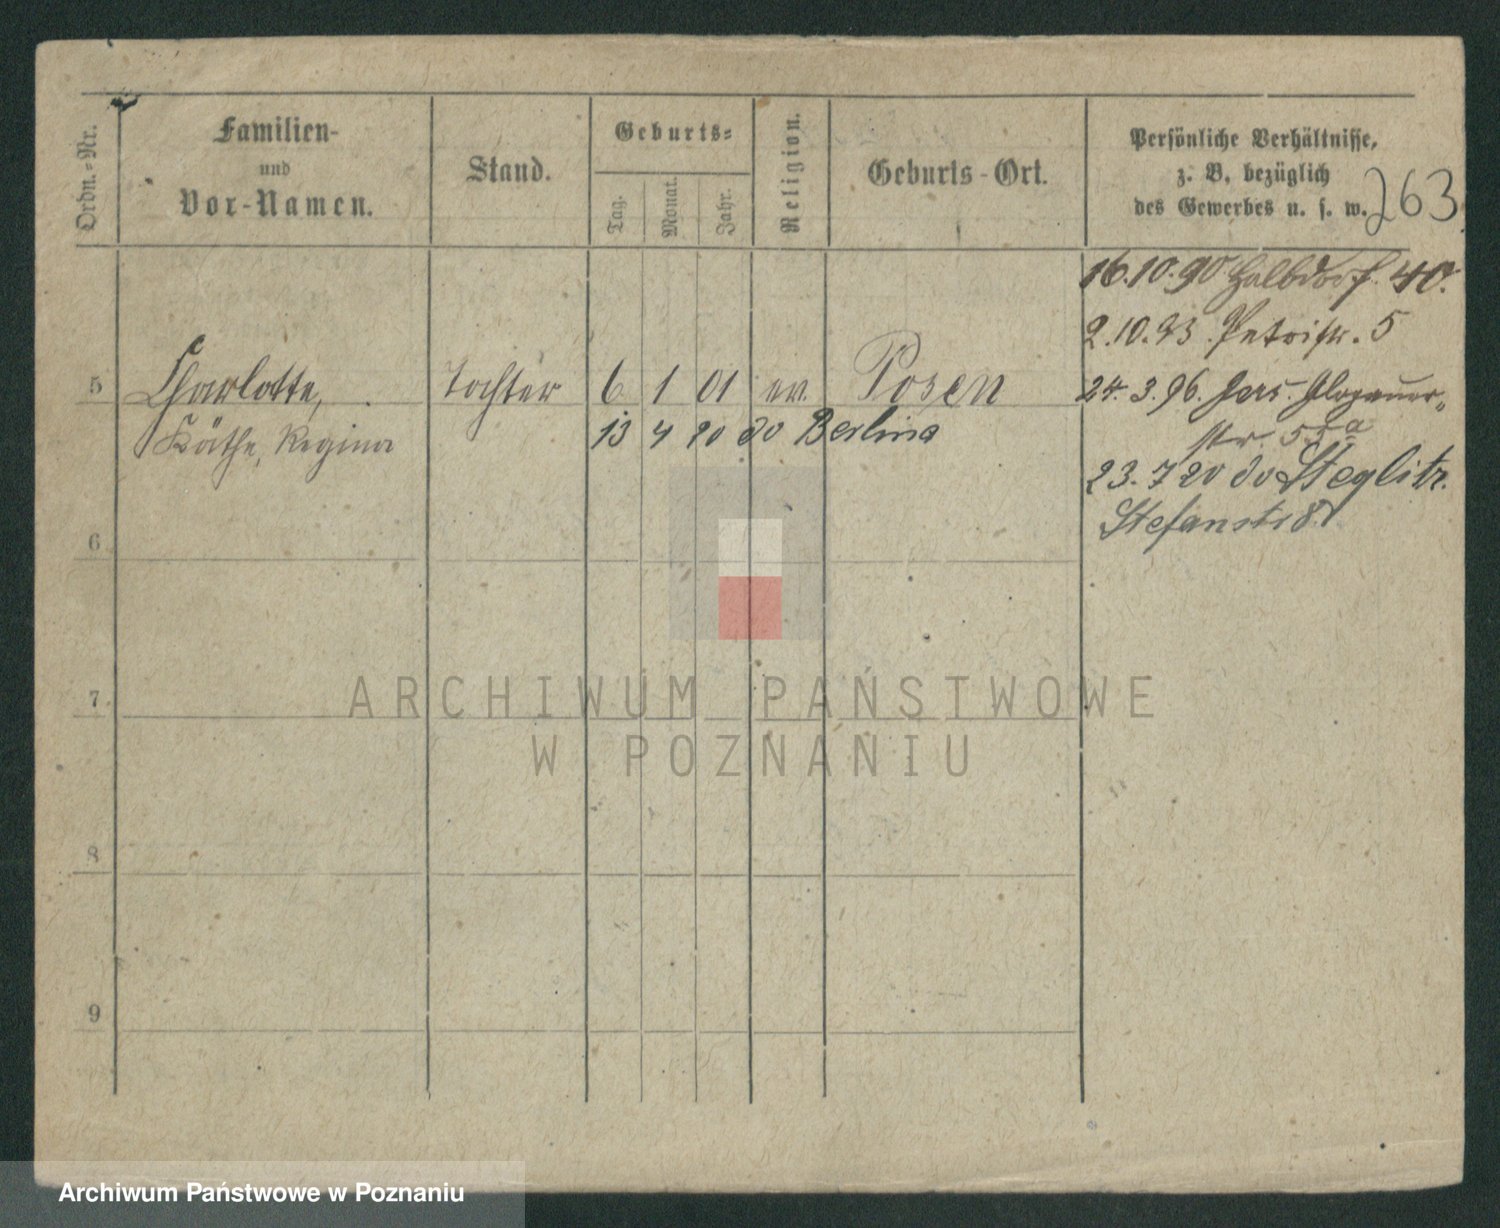 Ordn.-Nr.
Familien-
und
Vor-Namen.
Stand.
Geburts-
Tag.
Monat.
Jahr.
Religion.
Geburts-Ort.
Persönliche Verhältnisse,
z. B. bezüglich
des Gewerbes u. s. w.
263
16.10.90 Halbdorf. 40.
2.10.93. Petristr. 5
24.3.96. Jers. Glogauer-
str. 55a
23.7 20 do Steglitz.
Stefanstr 8
5 Charlotte, Tochter 6 1 01 ev. Posen
Käthe, Regina 13 4 20 do Berlin
6
7
8
9
ARCHIWUM PAŃSTWOWE
W POZNANIU
Archiwum Państwowe w Poznaniu